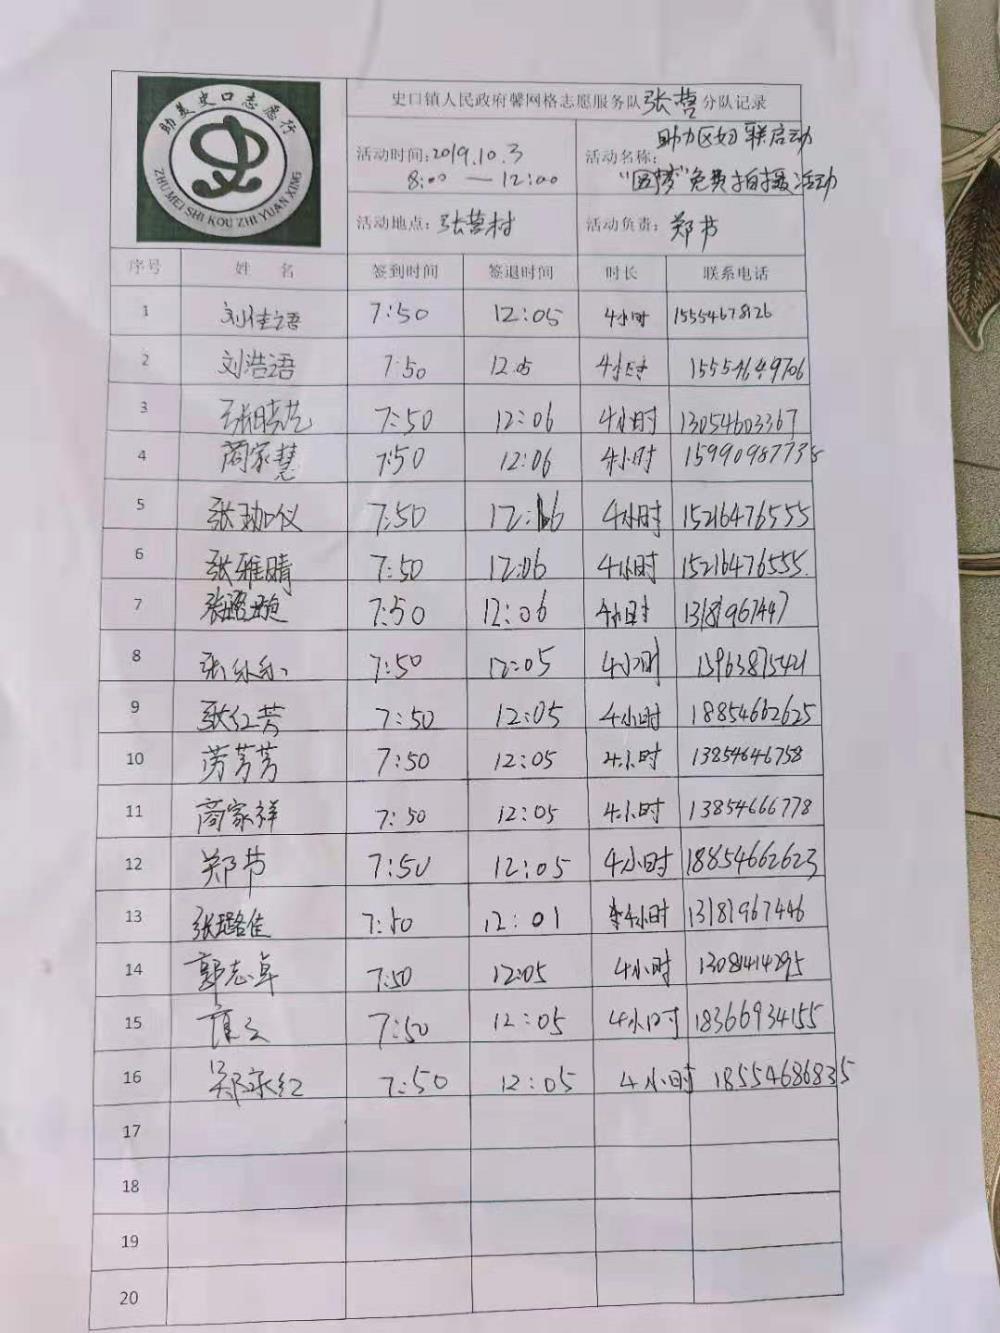 助美史口志愿行
ZHU MEI SHI KOU ZHI YUAN XING
史口镇人民政府馨网格志愿服务队张营分队记录
活动时间:2019.10.3
8:00 — 12:00
活动名称: 助力区妇联启动
"圆梦"免费拍摄活动
活动地点: 张营村 活动负责: 郑节
序号 姓 名 签到时间 签退时间 时长 联系电话
1 刘佳语 7:50 12:05 4小时 15554678126
2 刘浩语 7:50 12:05 4小时 15554649706
3 张晓艺 7:50 12:06 4小时 13054603367
4 商家慧 7:50 12:06 4小时 15990987738
5 张珈仪 7:50 12:06 4小时 15216476555
6 张雅晴 7:50 12:06 4小时 15216476555
7 7:50 12:06 4小时 13181967447
8 7:50 12:05 4小时 15963875421
9 张红芳 7:50 12:05 4小时 18854662625
10 芳芳 7:50 12:05 4小时 13854646758
11 商家祥 7:50 12:05 4小时 13854666778
12 郑节 7:50 12:05 4小时 18854662623
13 张璐佳 7:50 12:01 4小时 13181967446
14 郭志卓 7:50 12:05 4小时
15 7:50 12:05 4小时 18366934155
16 郑永红 7:50 12:05 4小时 18554686835
17
18
19
20